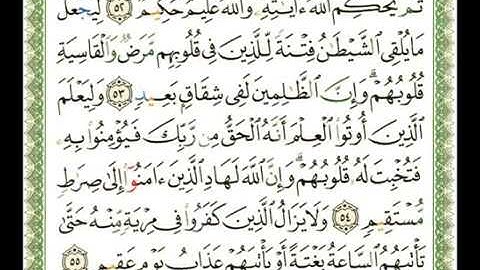 ثُمَّ يُحْكِمُ ٱللَّهُ ءَايَٰتِهِۦ وَٱللَّهُ عَلِيمٌ حَكِيمٌ ٥٢ لِّيَجْعَلَ
مَا يُلْقِى ٱلشَّيْطَٰنُ فِتْنَةً لِّلَّذِينَ فِى قُلُوبِهِم مَّرَضٌ وَٱلْقَاسِيَةِ
قُلُوبُهُمْ ۗ وَإِنَّ ٱلظَّٰلِمِينَ لَفِى شِقَاقٍۭ بَعِيدٍ ٥٣ وَلِيَعْلَمَ
ٱلَّذِينَ أُوتُوا۟ ٱلْعِلْمَ أَنَّهُ ٱلْحَقُّ مِن رَّبِّكَ فَيُؤْمِنُوا۟ بِهِۦ
فَتُخْبِتَ لَهُۥ قُلُوبُهُمْ ۗ وَإِنَّ ٱللَّهَ لَهَادِ ٱلَّذِينَ ءَامَنُوٓا۟ إِلَىٰ صِرَٰطٍ
مُّسْتَقِيمٍ ٥٤ وَلَا يَزَالُ ٱلَّذِينَ كَفَرُوا۟ فِى مِرْيَةٍ مِّنْهُ حَتَّىٰ
تَأْتِيَهُمُ ٱلسَّاعَةُ بَغْتَةً أَوْ يَأْتِيَهُمْ عَذَابُ يَوْمٍ عَقِيمٍ ٥٥